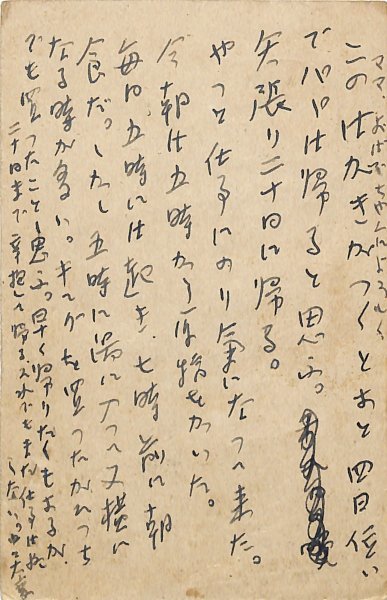 ママ、おばあちやんによろしく
このはがきがつくとあと四日位い
でパパは帰ると思ふ。
矢張り二十日に帰る。
やつと仕事にのり氣になつて来た。
今朝は五時から原稿をかいた。
毎日五時には起き、七時前に朝
食だ。しかし五時に湯に入つて又横に
なる時が多い。キングを買つたがれつち
でも買つたことと思ふ。早く帰りたくもあるが
二十日まで辛抱して帰る。それでもまだ仕事は